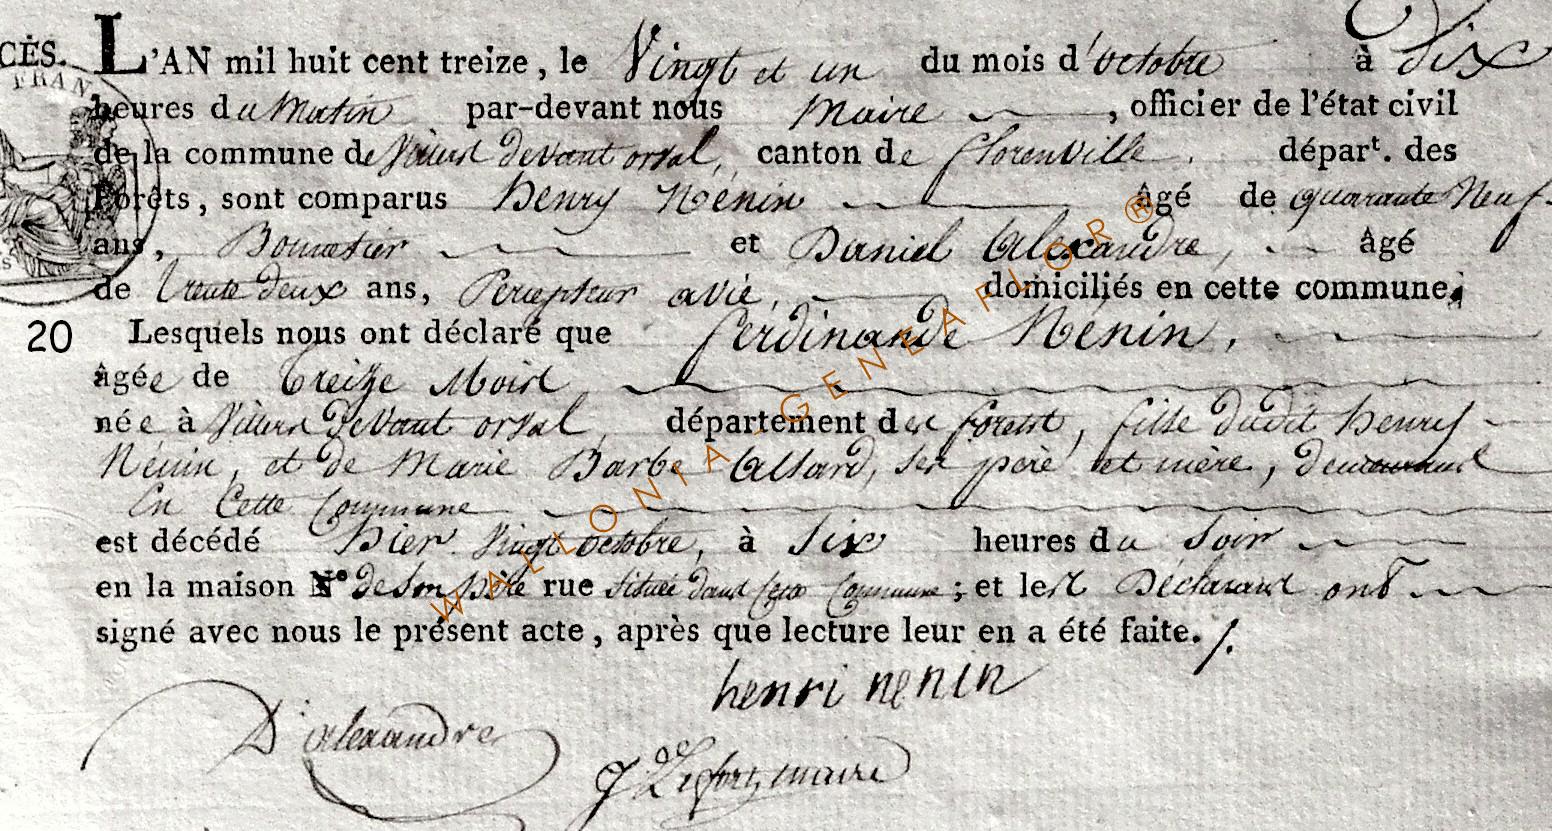 CÈS. L'AN mil huit cent treize, le Vingt et un du mois d'octobre à Dix
heures du Matin par-devant nous Maire, officier de l'état civil
de la commune de Villers devant orval, canton de florenville. départ. des
Forêts, sont comparus henry Nénin âgé de quarante Neuf
ans, Bonnetier et Daniel Alexandre, âgé
de trente deux ans, Percepteur a vie, domiciliés en cette commune;
20 Lesquels nous ont déclaré que ferdinande Nénin,
âgée de treize Mois
née à Villers Devant orval, département des forest, fille dudit henry
Nénin, et de Marie Barbe Allard, ses père et mère, demeurant
En Cette Commune
est décédé hier Vingt octobre, à six heures du Soir
en la maison N.º de son père rue située dans Commune; et les Déclarant ont
signé avec nous le présent acte, après que lecture leur en a été faite./.
henri nenin
D alexandre
J maire
FRAN
WALLONIA-GENEAFLOR®